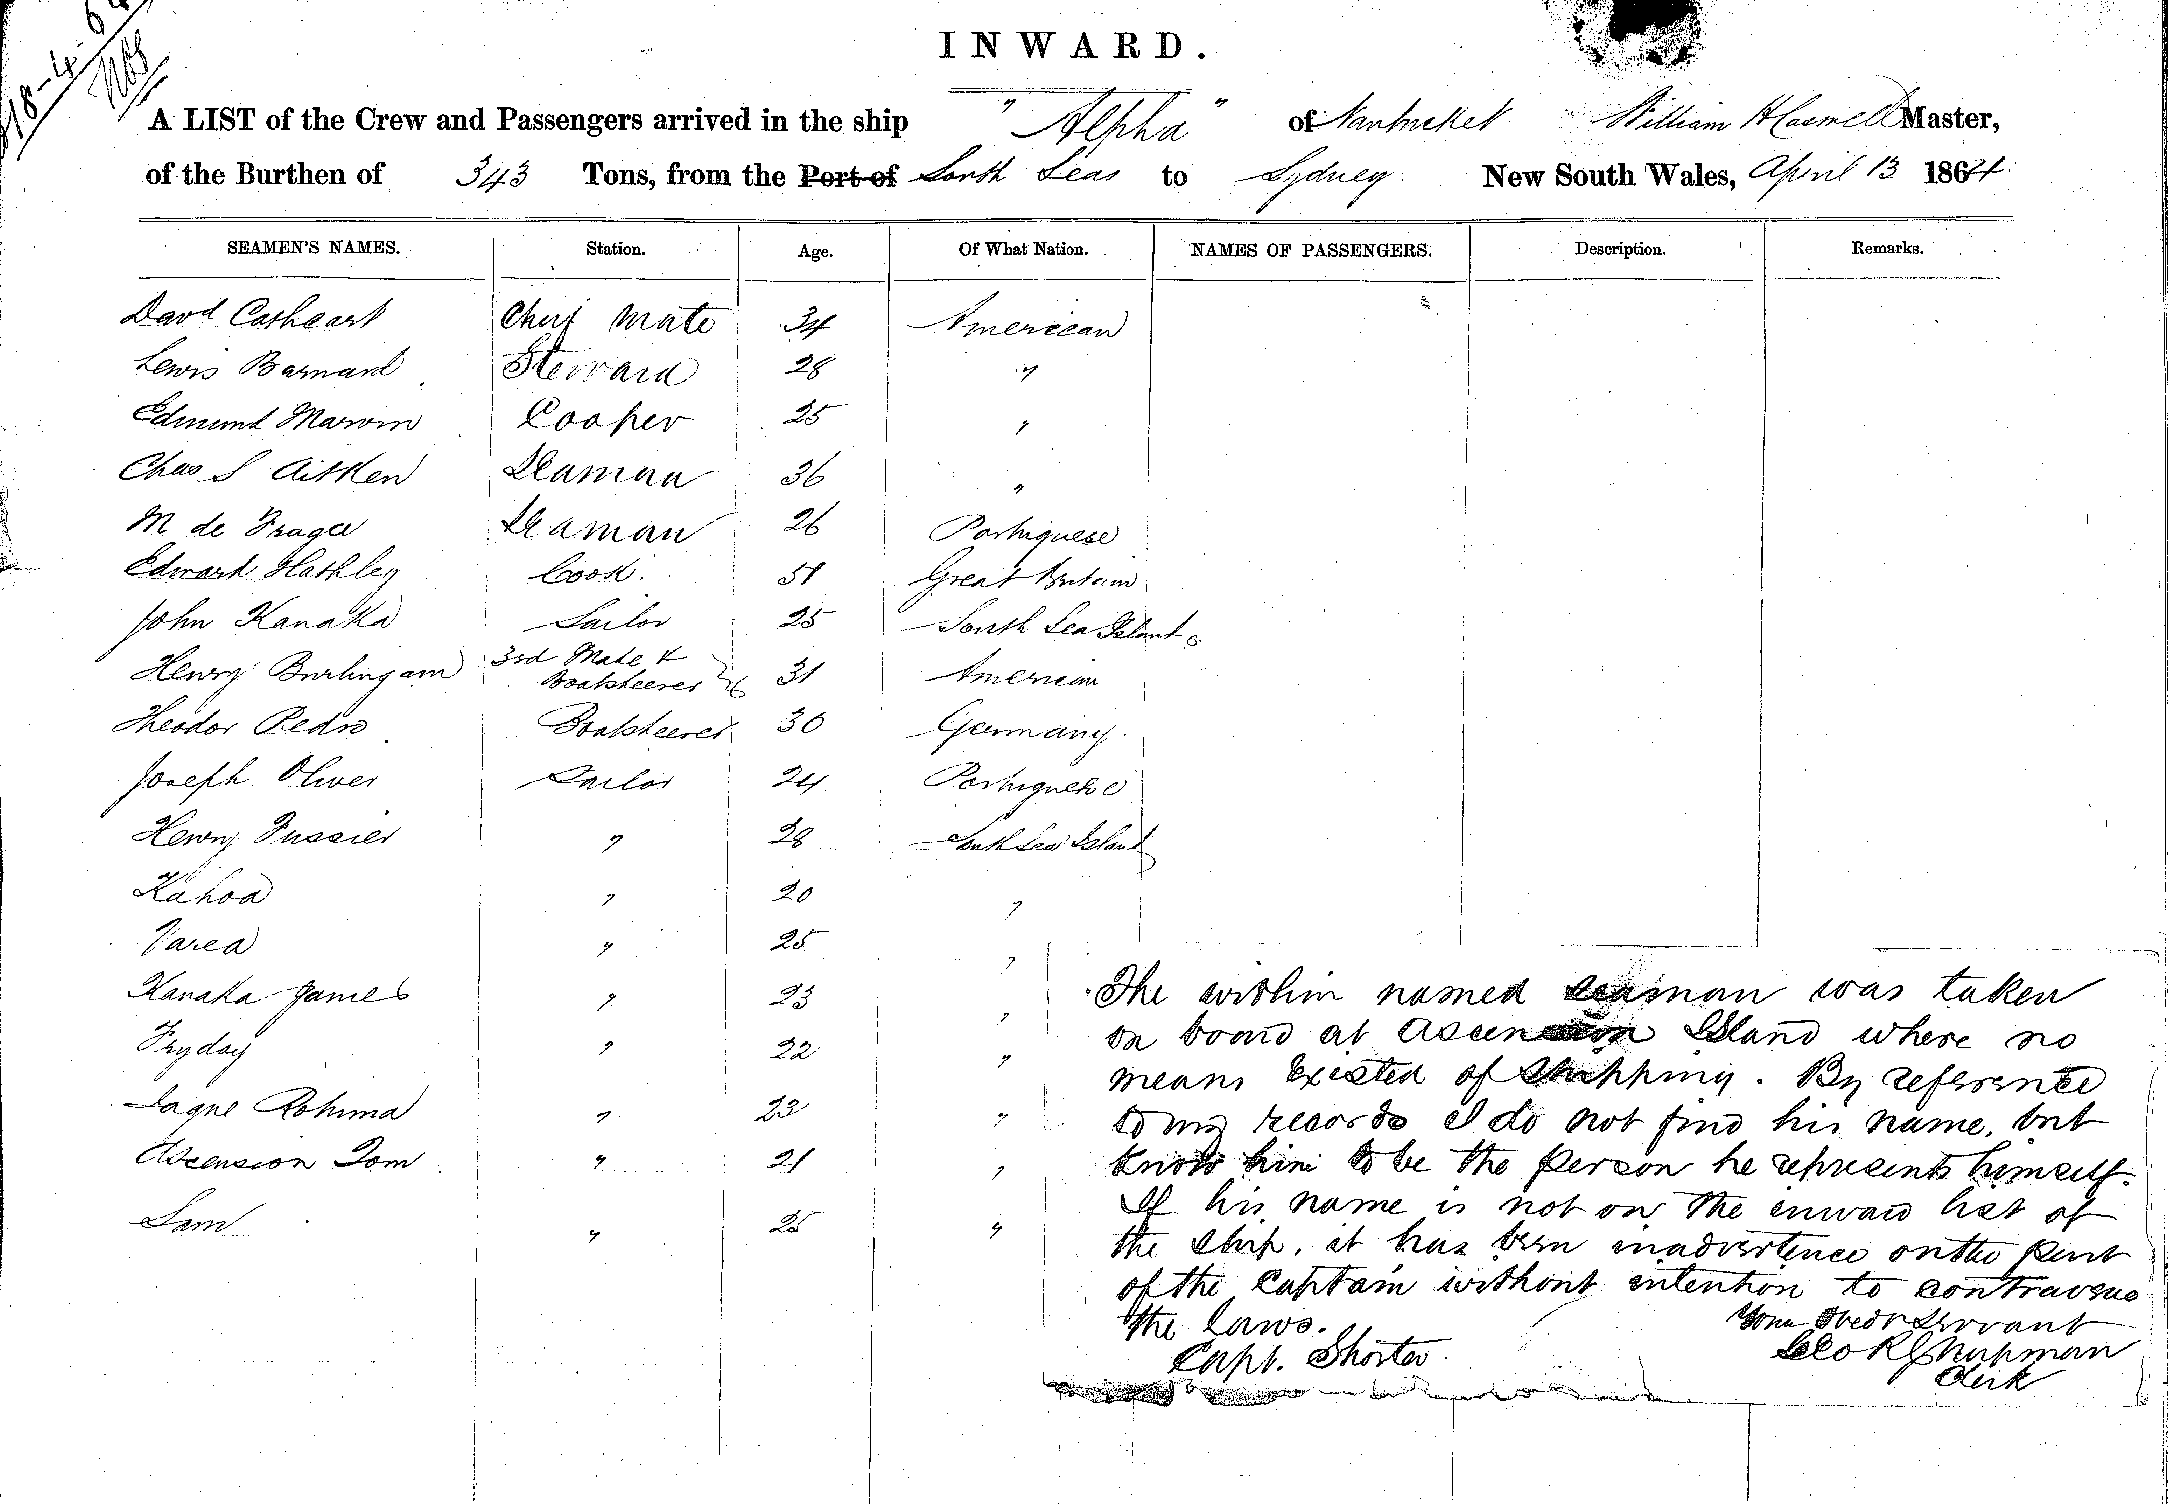 18-4-64
INWARD.
A LIST of the Crew and Passengers arrived in the ship "Alpha" of Nantucket William H Caswell Master,
of the Burthen of 343 Tons, from the Port of South Seas to Sydney New South Wales, April 13 1864
SEAMEN'S NAMES. Station. Age. Of What Nation. NAMES OF PASSENGERS. Description. Remarks.
Davd Catheart Cheif Mate 34 American
Lewis Barnard Steward 28 "
Edmund Marvin Cooper 25 "
Chas S Aitken Seaman 36 "
M de Fraga Seaman 26 Portuguese
Edward Hathley Cook. 51 Great Britain
John Kanaka Sailor 25 South Sea Island
Henry Burlingam 3rd Mate & Boatsteerer 31 American
Theodor Pedro Boatsteerer 30 Germany
Joseph Oliver Sailor 24 Portuguese
Henry Tussier " 28 South Sea Island
Kahoa " 20 "
Varea " 25 "
Kanaka James " 23 "
Fryday " 22 "
Jaque Rohima " 23 "
Ascension Tom " 21 "
Sam " 25 "
The within named seaman was taken
on board at Ascension Island where no
means existed of shipping. By reference
to my records I do not find his name, but
know him to be the person he represents himself.
If his name is not on the inward list of
the ship, it has been inadvertence on the part
of the Captain without intention to contravene
the laws.
Your Obedt Servant
Capt. Shorter
Geo R Chapman
Clerk